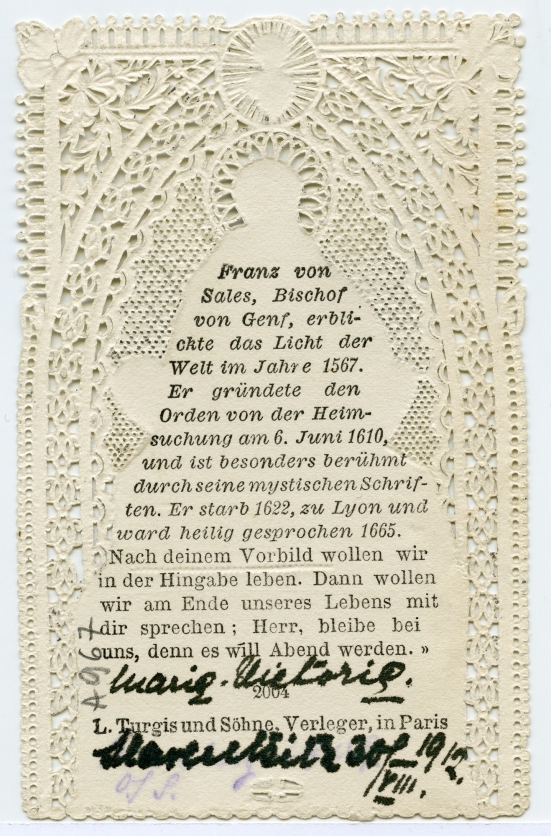 Franz von
Sales, Bischof
von Genf, erbli-
ckte das Licht der
Welt im Jahre 1567.
Er gründete den
Orden von der Heim-
suchung am 6. Juni 1610,
und ist besonders berühmt
durch seine mystischen Schrif-
ten. Er starb 1622, zu Lyon und
ward heilig gesprochen 1665.
Nach deinem Vorbild wollen wir
in der Hingabe leben. Dann wollen
wir am Ende unseres Lebens mit
dir sprechen ; Herr, bleibe bei
uns, denn es will Abend werden. »
Maria-Victoria.
2004
L. Turgis und Söhne, Verleger, in Paris
30/VIII. 1912.
A967